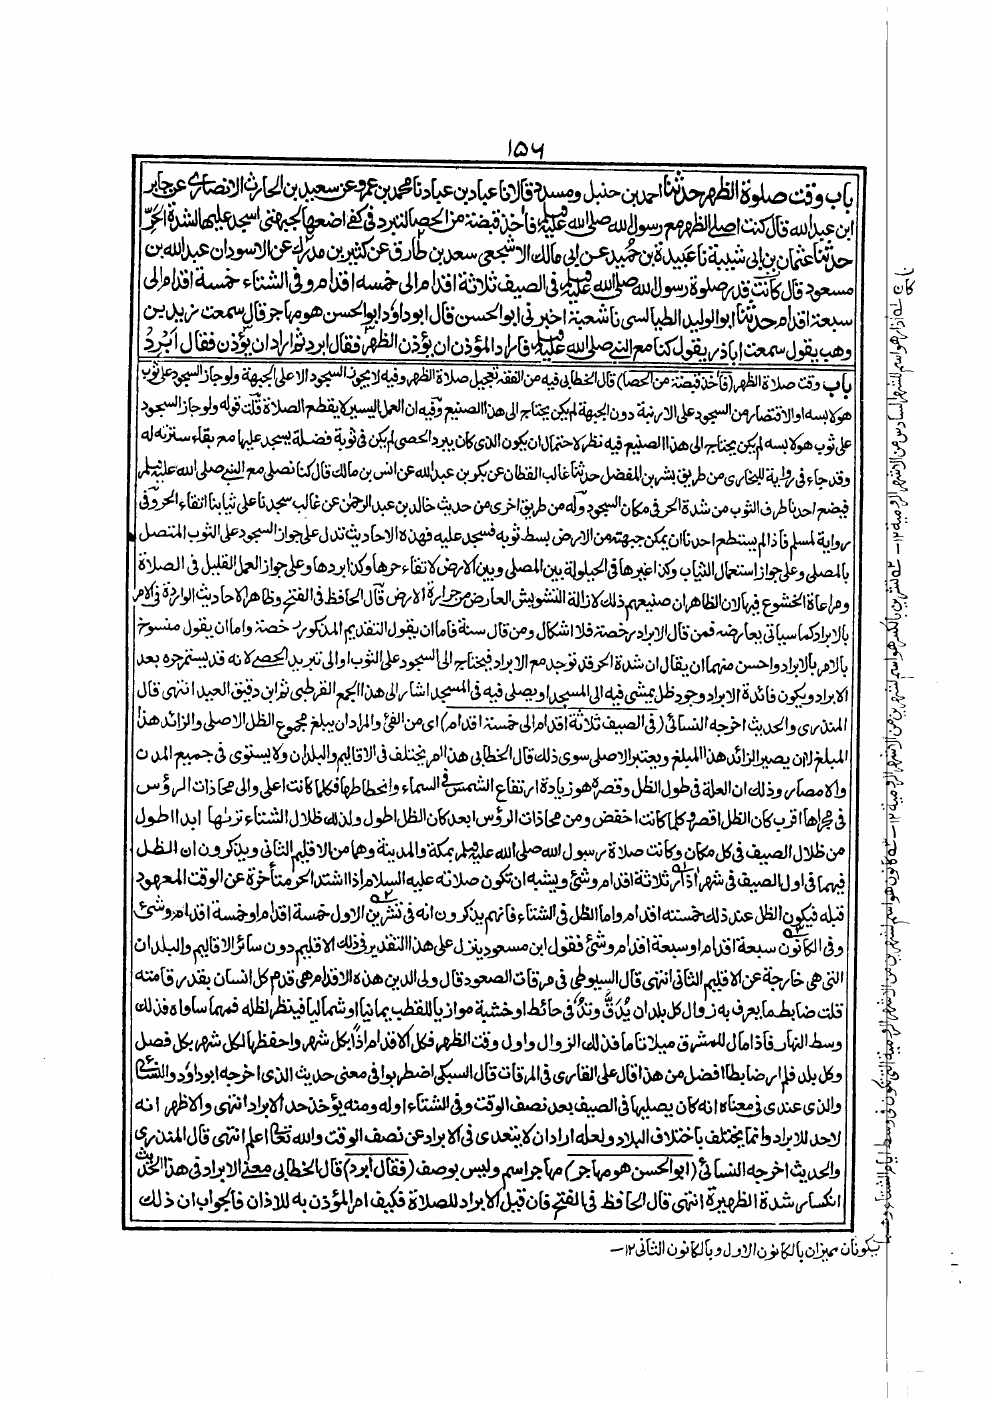 ١٥٦
باب وقت صلوة الظهر حدثنا احمد بن حنبل ومسدد قالا نا عباد بن عباد نا محمد بن عمرو عن سعيد بن الحارث الانصاري عن جابر
ابن عبد الله قال كنت اصلي الظهر مع رسول الله صلى الله عليه وسلم فأخذ قبضة من الحصا لتبرد في كفي اضعها لجبهتي اسجد عليها لشدة الحر
حدثنا عثمان بن ابي شيبة نا عبيدة بن حميد عن ابي مالك الاشجعي سعد بن طارق عن كثير بن مدرك عن الاسود ان عبد الله بن
مسعود قال كانت قدر صلوة رسول الله صلى الله عليه وسلم في الصيف ثلاثة اقدام الى خمسة اقدام وفي الشتاء خمسة اقدام الى
سبعة اقدام حدثنا ابو الوليد الطيالسي نا شعبة اخبرني ابو الحسن قال ابو داود ابو الحسن هو مهاجر قال سمعت زيد بن
وهب يقول سمعت ابا ذر يقول كنا مع النبي صلى الله عليه وسلم فاراد المؤذن ان يؤذن الظهر فقال ابرد ثم اراد ان يؤذن فقال ابرد
باب وقت صلاة الظهر (فأخذ قبضة من الحصا) قال الخطابي فيه من الفقه تعجيل صلاة الظهر وفيه لا يجوز السجود الا على الجبهة ولو جاز السجود على ثوب
هو لابسه او الاقتصار من السجود على الارنبة دون الجبهة لم يكن يحتاج الى هذا الصنيع وفيه ان العمل اليسير لا يقطع الصلاة قلت قوله ولو جاز السجود
على ثوب هو لابسه لم يكن يحتاج الى هذا الصنيع فيه نظر لاحتمال ان يكون الذي كان يبرد الحصى لم يكن في ثوبه فضلة يسجد عليها مع بقاء سترته له
وقد جاء في رواية للبخاري من طريق بشر بن المفضل حدثنا غالب القطان عن بكر بن عبد الله عن انس بن مالك قال كنا نصلي مع النبي صلى الله عليه وسلم
فيضع احدنا طرف الثوب من شدة الحر في مكان السجود وله من طريق اخرى من حديث خالد بن عبد الرحمن عن غالب سجدنا على ثيابنا اتقاء الحر وفي
رواية لمسلم فاذا لم يستطع احدنا ان يمكن جبهته من الارض بسط ثوبه فسجد عليه فهذه الاحاديث تدل على جواز السجود على الثوب المتصل
بالمصلي وعلى جواز استعمال الثياب وكذا غيرها في الحيلولة بين المصلي وبين الارض لاتقاء حرها وكذا بردها وعلى جواز العمل القليل في الصلاة
ومراعاة الخشوع فيها لان الظاهر ان صنيعهم ذلك لازالة التشويش العارض من حرارة الارض قال الحافظ في الفتح وظاهر الاحاديث الواردة في الامر
بالابراد كما سياتي يعارضه فمن قال الابراد رخصة فلا اشكال ومن قال سنة فاما ان يقول التقديم المذكور رخصة واما ان يقول منسوخ
بالامر بالابراد واحسن منهما ان يقال ان شدة الحر قد توجد مع الابراد فيحتاج الى السجود على الثوب او الى تبريد الحصى لانه قد يستمر حره بعد
الابراد ويكون فائدة الابراد وجود ظل يمشي فيه الى المسجد او يصلي فيه في المسجد اشار الى هذا الجمع القرطبي ثم ابن دقيق العيد انتهى قال
المنذري والحديث اخرجه النسائي (في الصيف ثلاثة اقدام الى خمسة اقدام) اي من الفيء والمراد ان يبلغ مجموع الظل الاصلي والزائد هذا
المبلغ لا ان يصير الزائد هذا المبلغ ويعتبر الاصلي سوى ذلك قال الخطابي هذا امر يختلف في الاقاليم والبلدان ولا يستوي في جميع المدن
والامصار وذلك ان العلة في طول الظل وقصره هو زيادة ارتفاع الشمس في السماء وانحطاطها فكلما كانت اعلى والى محاذات الرؤس
في مجراها اقرب كان الظل اقصر وكلما كانت اخفض ومن محاذات الرؤس ابعد كان الظل اطول ولذلك ظلال الشتاء تراها ابدا اطول
من ظلال الصيف في كل مكان وكانت صلاة رسول الله صلى الله عليه وسلم بمكة والمدينة وهما من الاقليم الثاني ويذكرون ان الظل
فيهما في اول الصيف في شهر آذار ثلاثة اقدام وشئ ويشبه ان تكون صلاته عليه السلام اذا اشتد الحر متأخرة عن الوقت المعهود
قبله فيكون الظل عند ذلك خمسة اقدام واما الظل في الشتاء فانهم يذكرون انه في تشرين الاول خمسة اقدام او خمسة اقدام وشئ
وفي الكانون سبعة اقدام او سبعة اقدام وشئ فقول ابن مسعود ينزل على هذا التقدير في ذلك الاقليم دون سائر الاقاليم والبلدان
التي هي خارجة عن الاقليم الثاني انتهى قال السيوطي في مرقات الصعود قال ولي الدين هذه الاقدام هي قدم كل انسان بقدر قامته
قلت ضابط ما يعرف به زوال كل بلد ان يدق وتد في حائط او خشبة موازيا للقطب يمانيا او شماليا فينظر لظله فمهما ساواه فذلك
وسط النهار فاذا مال للمشرق ميلا تاما فذلك الزوال واول وقت الظهر فكل الاقدام اذاً بكل شهر واحفظها لكل شهر بكل فصل
وكل بلد فلم ار ضابطا افضل من هذا قال علي القاري في المرقات قال السبكي اضطربوا في معنى حديث الذي اخرجه ابو داود والنسائي
والذي عندي في معناه انه كان يصليها في الصيف بعد نصف الوقت وفي الشتاء اوله ومنه يؤخذ حد الابراد انتهى والاظهر انه
لا حد للابراد وانما يختلف باختلاف البلاد ولعله اراد ان لا يتعدى في الابراد عن نصف الوقت والله تعالى اعلم انتهى قال المنذري
والحديث اخرجه النسائي (ابو الحسن هو مهاجر) مهاجر اسم وليس بوصف (فقال ابرد) قال الخطابي معنى الابراد في هذا الحديث
انكسار شدة الظهيرة انتهى قال الحافظ في الفتح فان قيل الابراد للصلاة فكيف امر المؤذن به للاذان فالجواب ان ذلك
يكونان يميزان بالكانون الاول وبالكانون الثاني ١٢